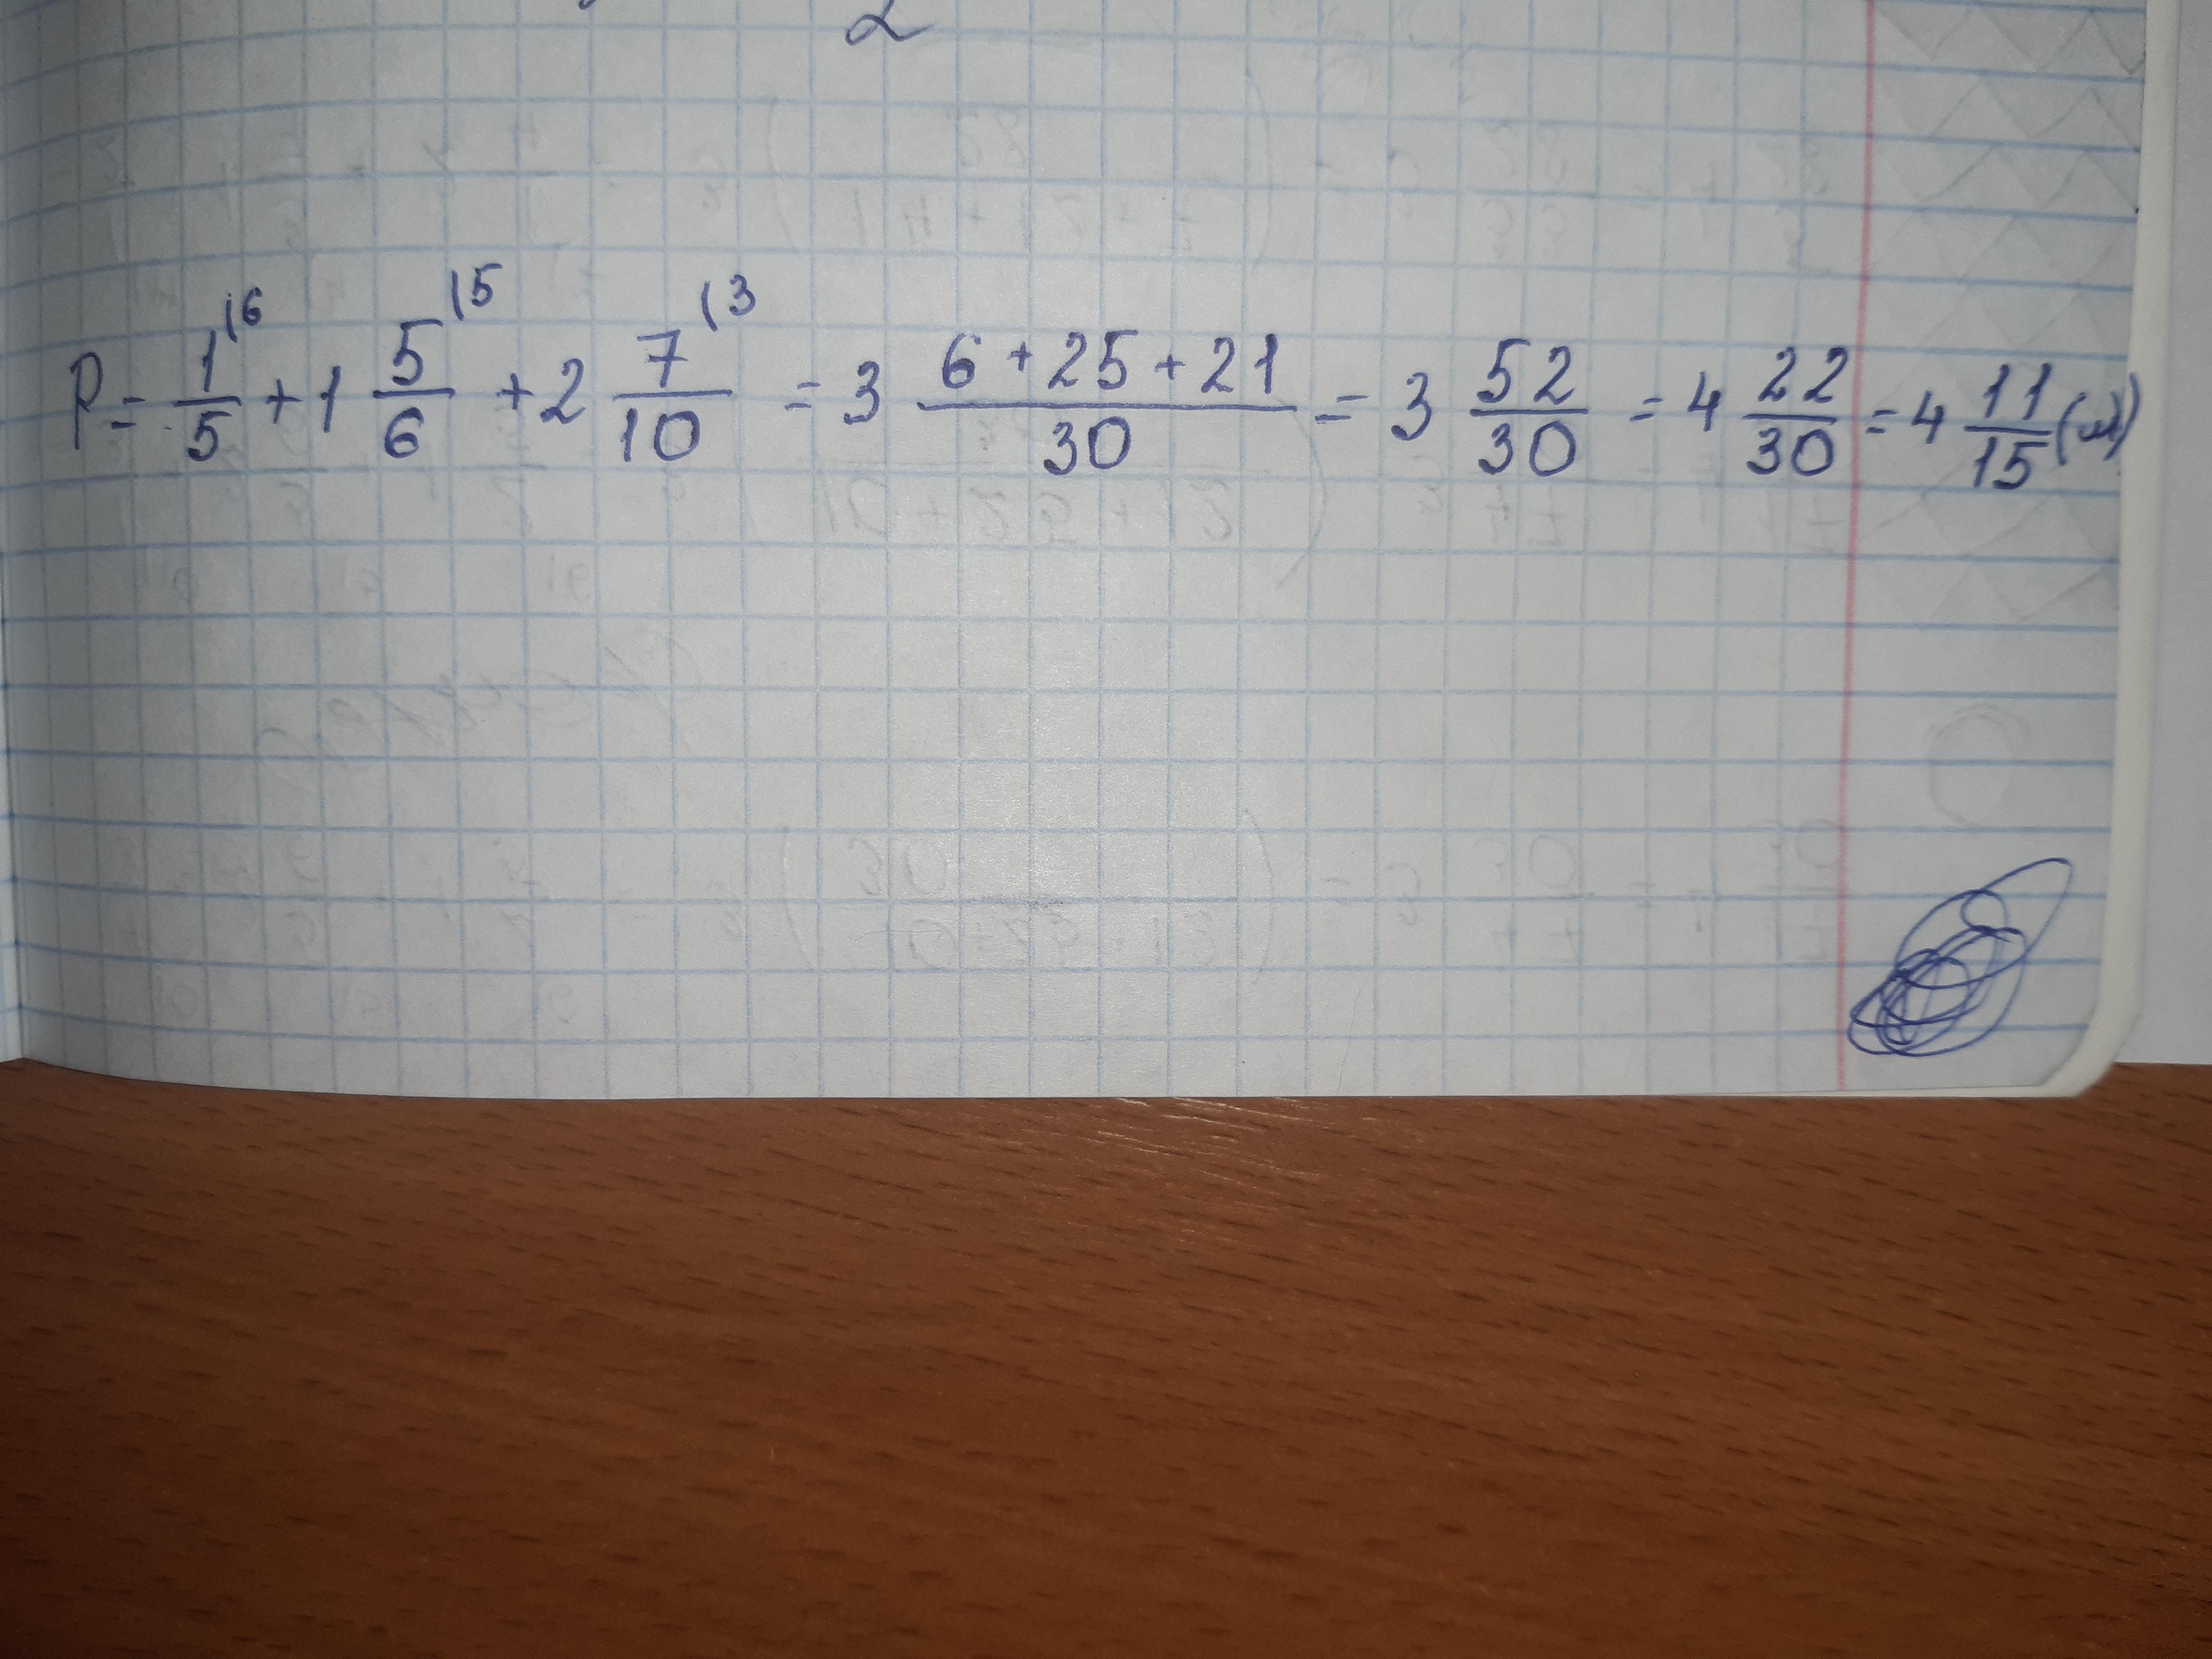 2
P = 1/5 ⁽⁶ + 1 5/6 ⁽⁵ + 2 7/10 ⁽³ = 3 (6+25+21)/30 = 3 52/30 = 4 22/30 = 4 11/15 (м)